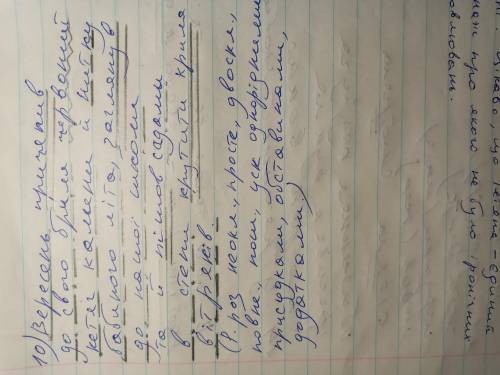 10) Вересень причепив
до свого бриля червоний
кетяг калини й нитку
бабиного літа, заглянув
до нашої школи
та й пішов садами
в степи крутити крила
вітряків.
(Р. роз неокл, просте, двоскл,
повне, пош, уск однорідними
присудками, обставинами,
додатками.
Цікаво, що
про якою не було іронічних